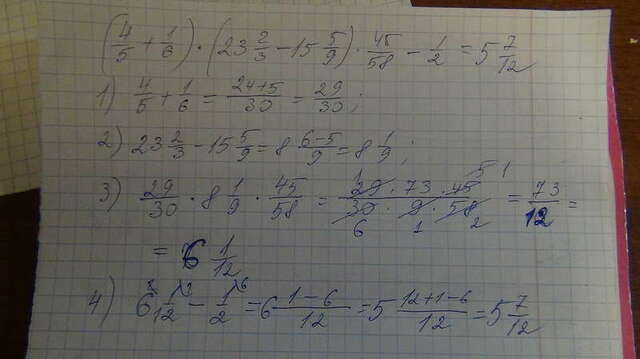 (4/5 + 1/6) · (23 2/3 − 15 5/9) · 45/58 − 1/2 = 5 7/12
1) 4/5 + 1/6 = 24+5/30 = 29/30;
2) 23 2/3 − 15 5/9 = 8 6−5/9 = 8 1/9;
3) 29/30 · 8 1/9 · 45/58 = 29 · 73 · 45/30 · 9 · 58 = 73/12 =
= 6 1/12
4) 6 1/12 − 1/2 = 6 1−6/12 = 5 12+1−6/12 = 5 7/12